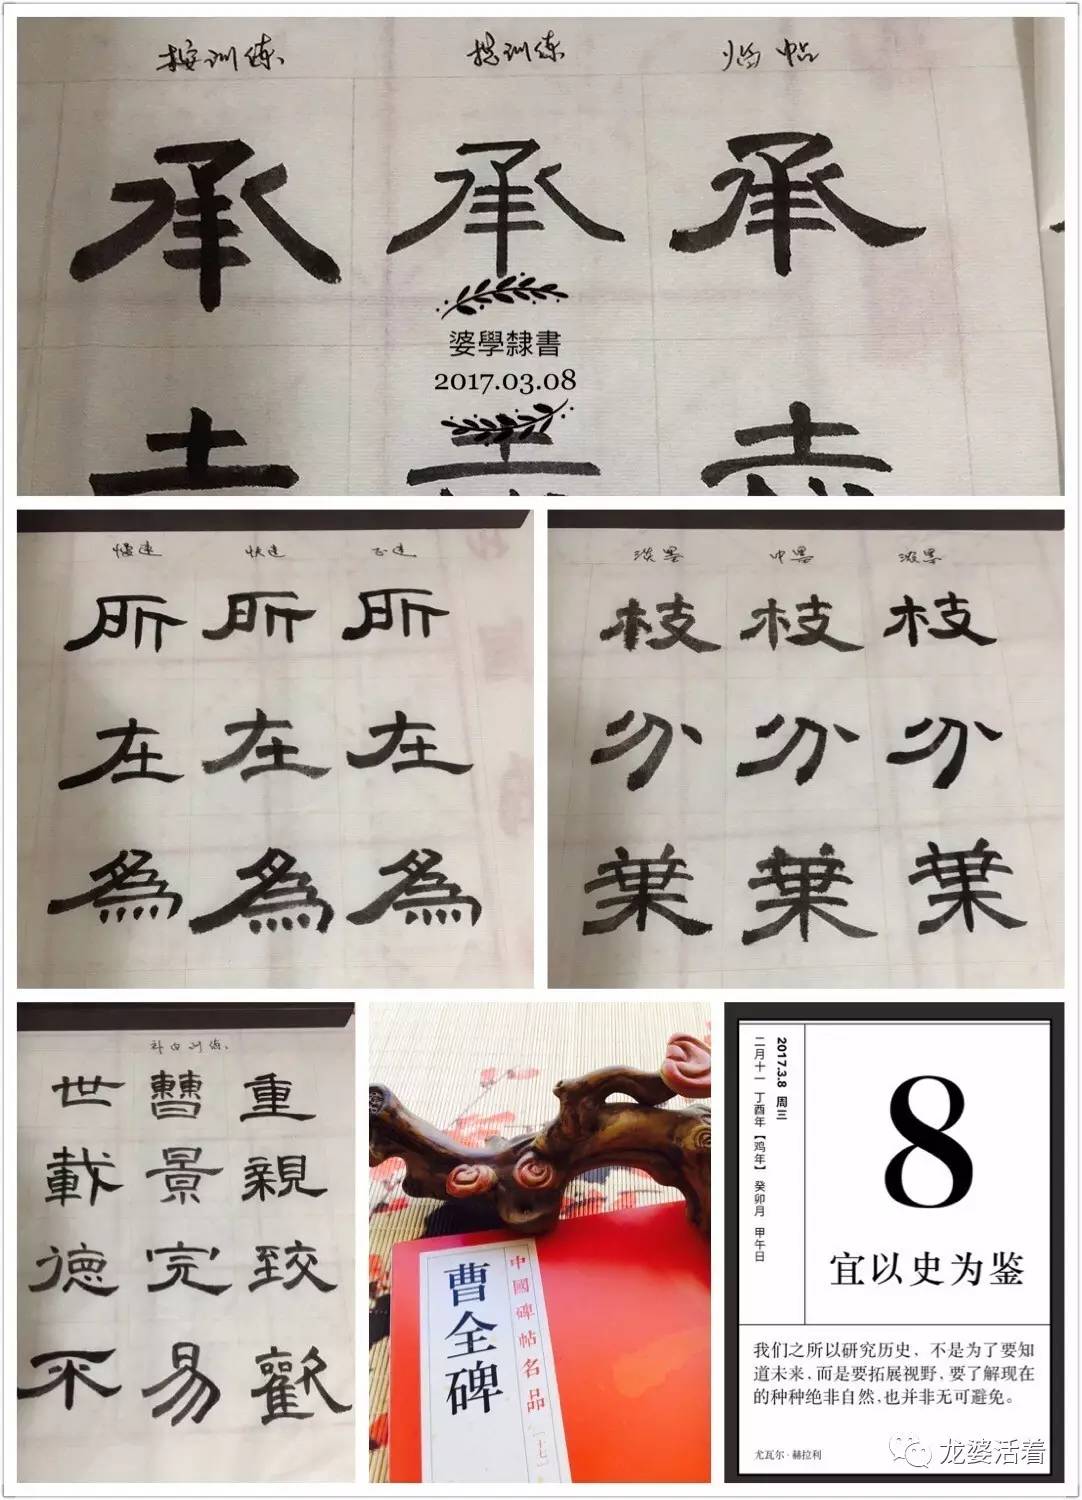 按训练、 提训练 临帖
承 承 承
婆學隸書
2017.03.08
慢速 快速 正速
所 所 所
在 在 在
為 為 為
淡墨 中墨 浓墨
枝 枝 枝
分 分 分
葉 葉 葉
补白训练、
世 曹 重
載 景 親
德 完 致
不 易 歡
中國碑帖名品[十七]
曹全碑
2017.3.8 周三
二月十一 丁酉年【鸡年】癸卯月 甲午日
8
宜以史为鉴
我们之所以研究历史，不是为了要知
道未来，而是要拓展视野，要了解现在
的种种绝非自然，也并非无可避免。
尤瓦尔·赫拉利
龙婆活着